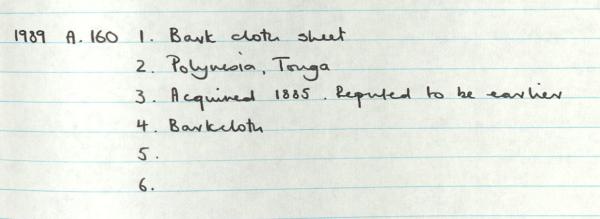 1989 A.160 1. Bark cloth sheet
2. Polynesia, Tonga
3. Acquired 1885. Reputed to be earlier
4. Barkcloth
5.
6.